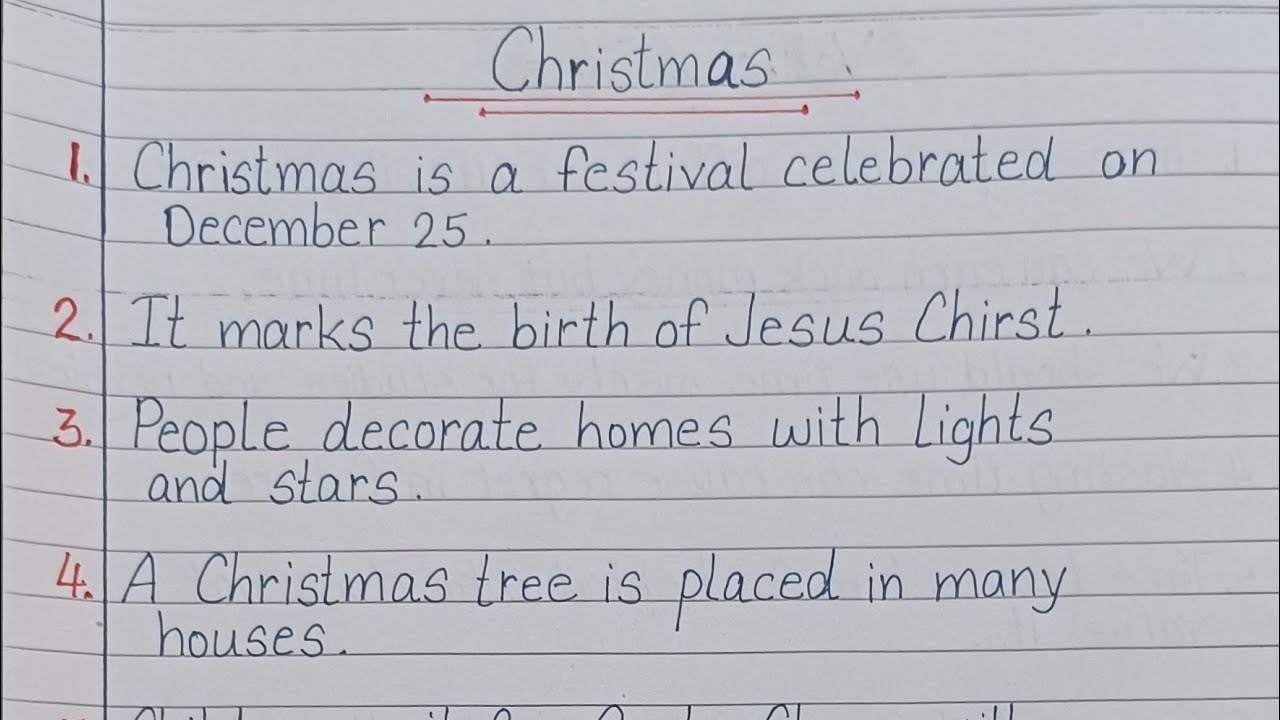 Christmas
1. Christmas is a festival celebrated on
December 25.
2. It marks the birth of Jesus Chirst.
3. People decorate homes with lights
and stars.
4. A Christmas tree is placed in many
houses.